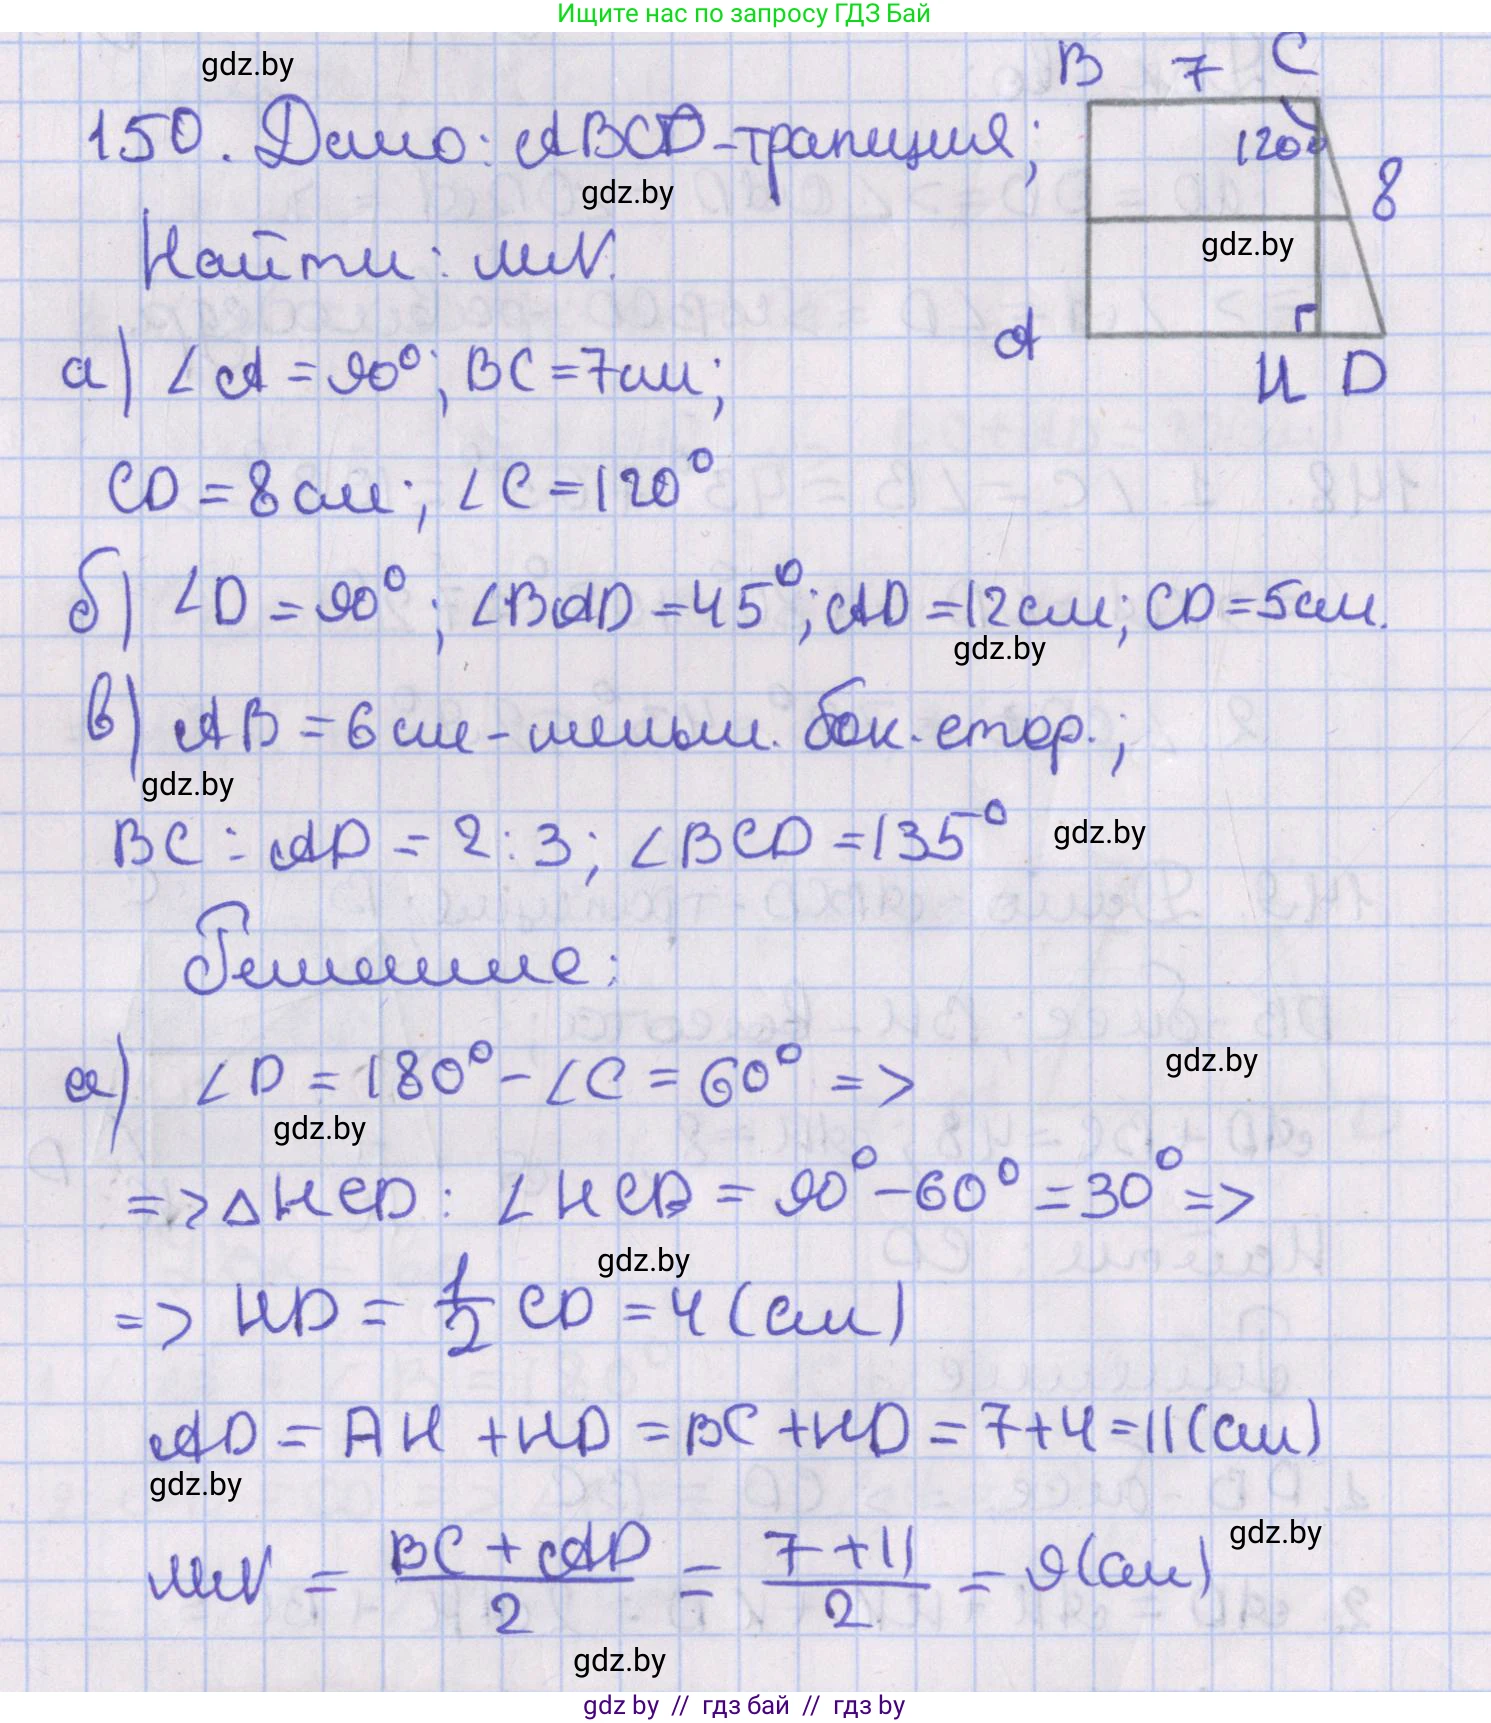 Ищите нас по запросу ГДЗ Бай
gdz.by
B 7 C
150. Дано: ABCD-трапеция;
120°
8
gdz.by
Найти: MN.
gdz.by
A
H D
а) ∠A = 90°; BC = 7см;
CD = 8см; ∠C = 120°
б) ∠D = 90°; ∠BAD = 45°; AD = 12см; CD = 5см.
gdz.by
в) AB = 6см - меньш. бок. стор.;
gdz.by
BC : AD = 2 : 3; ∠BCD = 135°
gdz.by
Решение:
а) ∠D = 180° - ∠C = 60° =>
gdz.by
gdz.by
=> △HCD : ∠HCD = 90° - 60° = 30° =>
gdz.by
=> HD = 1/2 CD = 4 (см)
AD = AH + HD = BC + HD = 7 + 4 = 11 (см)
gdz.by
MN = BC + AD / 2 = 7 + 11 / 2 = 9 (см)
gdz.by
gdz.by
gdz by // гдз бай // гдз by